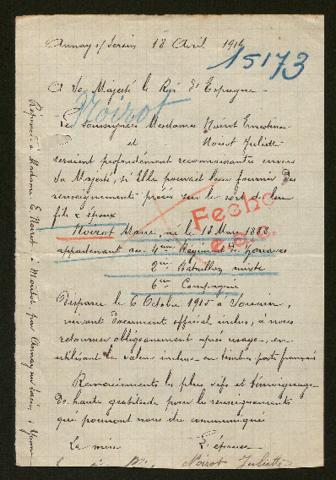 Annay s/ Serein 18 Avril 1916
15173
A Sa Majesté le Roi d'Espagne
Noirot
Les soussignées Mesdames Noirot Ernestine
et Noirot Juliette
seraient profondément reconnaissantes envers
Sa Majesté, si Elle pouvait leur fournir des
renseignements précis sur le sort de leur
fils & époux
Noirot Marie, né le 15 Mars 1888
appartenant au Régiment de Zouaves
2me Bataillon mixte
6me Compagnie
Disparu le 6 Octobre 1915 à Souain,
suivant document officiel inclus, à nous
retourner obligeamment après usage, en
utilisant la valeur incluse en timbre poste français
Remerciements les plus vifs et témoignage
de haute gratitude pour les renseignements
qui pourront nous être communiqués
La mère L'épouse
Noirot Juliette
Fecho
Réponse à Madame E. Noirot à par Annay sur Serein, Yonne